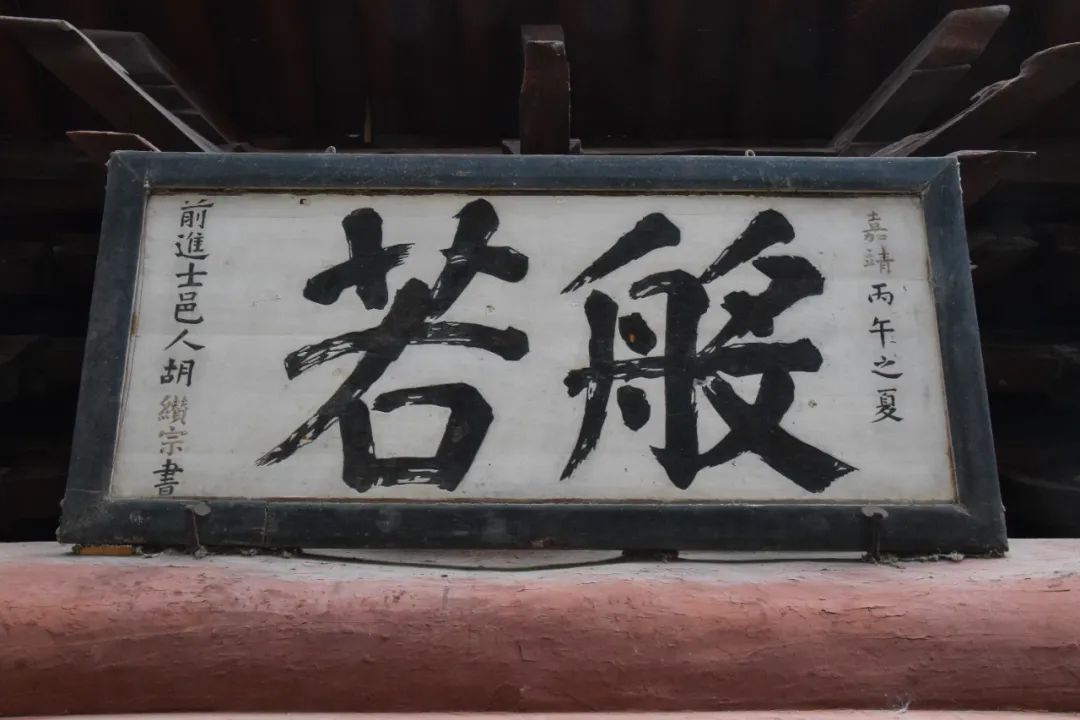 嘉靖丙午之夏
般若
前進士邑人胡纘宗書